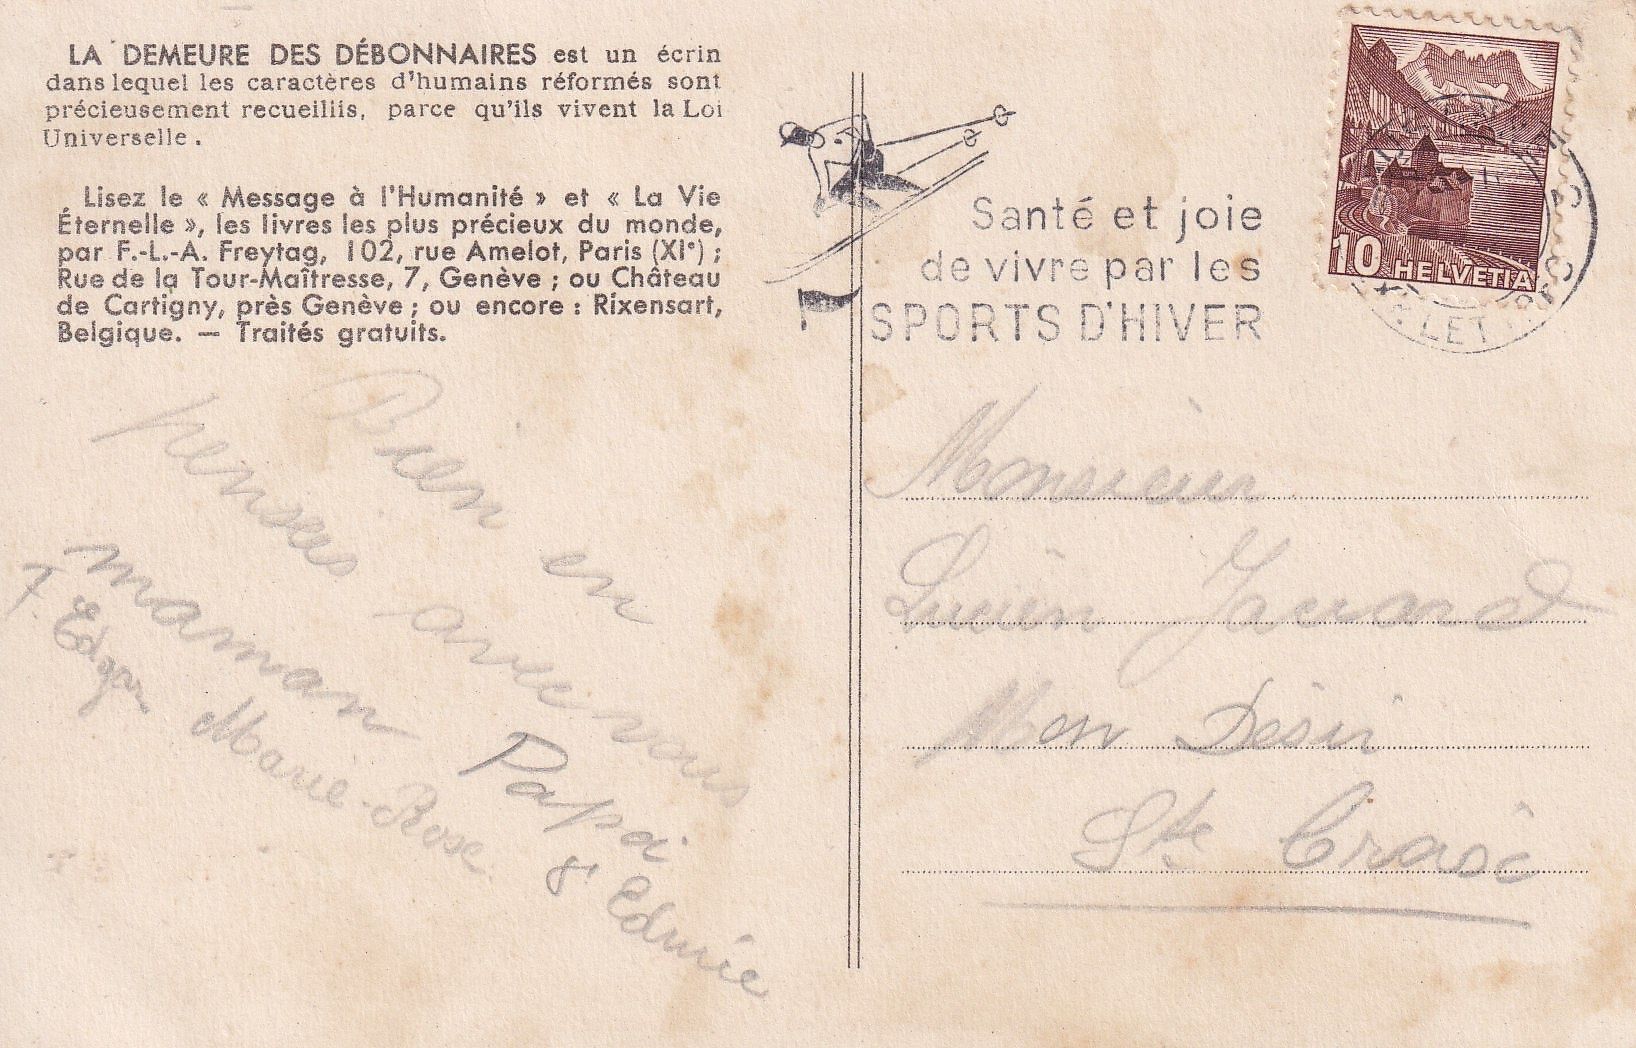 LA DEMEURE DES DÉBONNAIRES est un écrin
dans lequel les caractères d'humains réformés sont
précieusement recueillis, parce qu'ils vivent la Loi
Universelle.
Lisez le « Message à l'Humanité » et « La Vie
Éternelle », les livres les plus précieux du monde,
par F.-L.-A. Freytag, 102, rue Amelot, Paris (XIe) ;
Rue de la Tour-Maîtresse, 7, Genève ; ou Château
de Cartigny, près Genève ; ou encore : Rixensart,
Belgique. — Traités gratuits.
Bien en
pensées avec vous
maman Papa
F. Edgar Marie-Rose & Edmée
Santé et joie
de vivre par les
SPORTS D'HIVER
10 HELVETIA
Monsieur
Lucien Jaccard
Mon Désir
Ste Croix